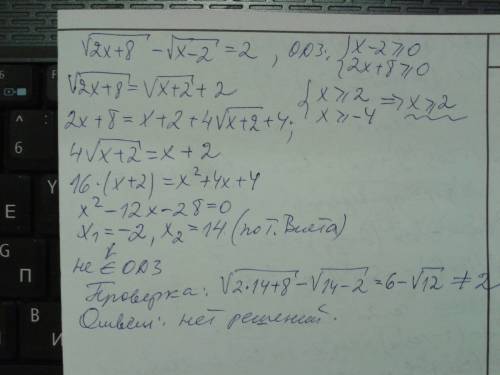 √(2x+8) - √(x-2) = 2, ОДЗ: { x-2≥0
2x+8≥0
√(2x+8) = √(x+2) + 2
{ x≥2
x≥-4 ⇒ x≥2
2x+8 = x+2+4√(x+2)+4;
4√(x+2) = x+2
16·(x+2) = x²+4x+4
x²-12x-28=0
x₁=-2, x₂=14 (по т. Виета)
не ∈ ОДЗ
Проверка: √(2·14+8) - √(14-2) = 6-√12 ≠ 2
Ответ: нет решений.
^
6
Y
Н
G
П
H
В
И